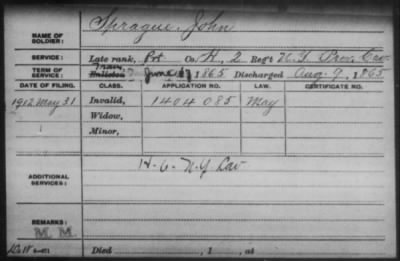 Sprague, John
NAME OF SOLDIER:
SERVICE: Late rank, Pvt Co. H, 2 Regt N.Y. Prov. Cav.
TERM OF SERVICE: Trans. Enlisted June 17, 1865 Discharged Aug. 9, 1865
DATE OF FILING. CLASS. APPLICATION NO. LAW. CERTIFICATE NO.
1912 May 31 Invalid, 1404085 May
Widow,
Minor,
ADDITIONAL SERVICES: H-6-N.Y. Cav
REMARKS:
M. M.
Died , 1 , at